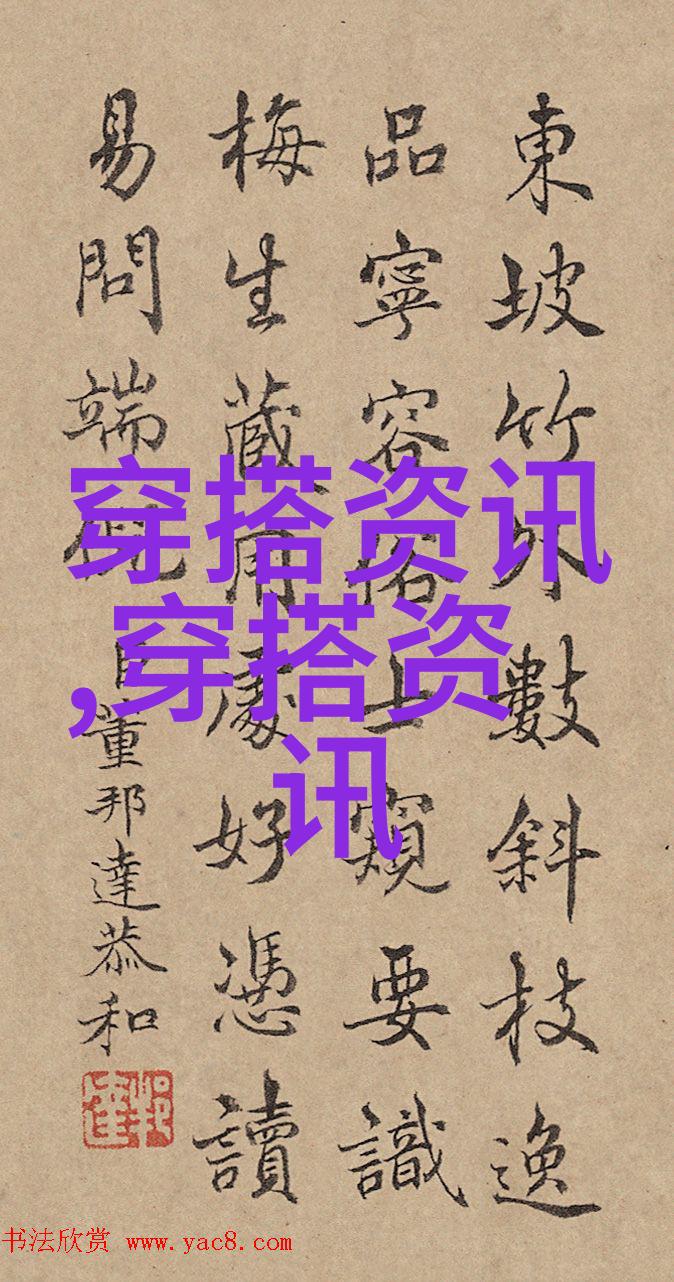 東坡竹外數斜枝逸
品寧容俗士窺要識
梅生藏用處好憑讀
易問端倪 臣董邦達恭和
穿搭资讯
,穿搭资
讯
书法欣赏 www.yac8.com